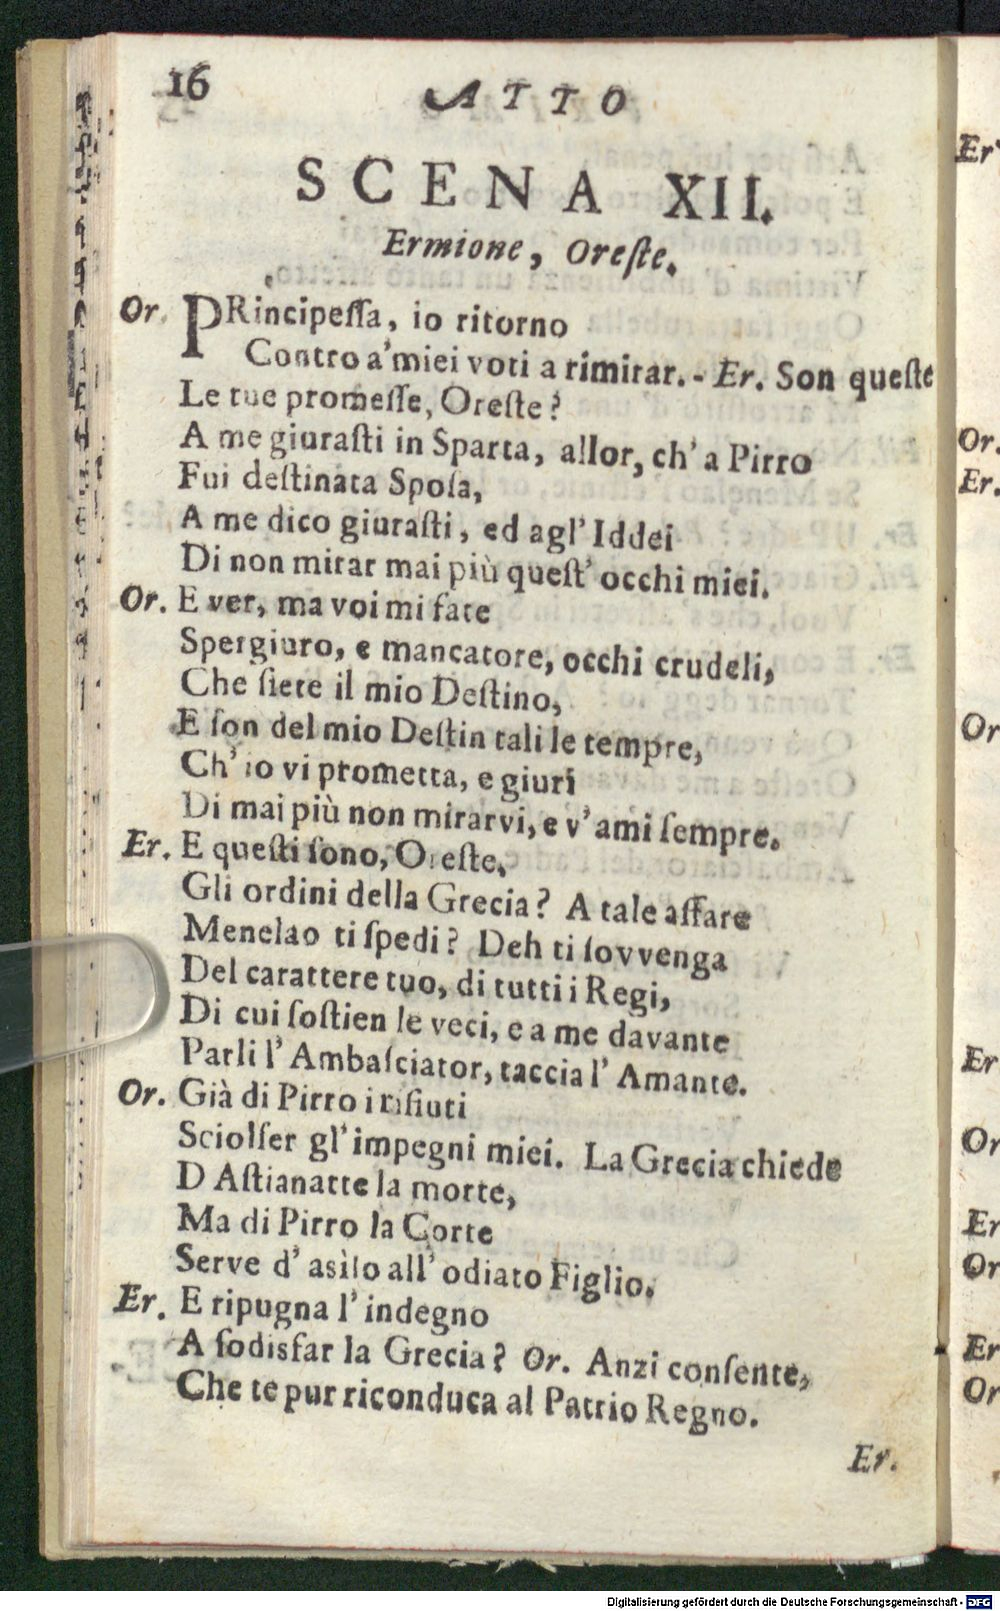 16
ATTO
SCENA XII.
Ermione, Oreste.
Or. PRincipeſſa, io ritorno
Contro a'miei voti a rimirar. - Er. Son queſte
Le tue promeſſe, Oreſte?
A me giuraſti in Sparta, allor, ch' a Pirro
Fui deſtinata Spoſa,
A me dico giuraſti, ed agl' Iddei
Di non mirar mai più queſt' occhi miei.
Or. E ver, ma voi mi fate
Spergiuro, e mancatore, occhi crudeli,
Che ſiete il mio Deſtino,
E ſon del mio Deſtin tali le tempre,
Ch' io vi prometta, e giuri
Di mai più non mirarvi, e v' ami ſempre.
Er. E queſti ſono, Oreſte,
Gli ordini della Grecia? A tale affare
Menelao ti ſpedì? Deh ti ſovvenga
Del carattere tuo, di tutti i Regi,
Di cui ſoſtien le veci, e a me davante
Parli l' Ambaſciator, taccia l' Amante.
Or. Già di Pirro i rifiuti
Sciolſer gl' impegni miei. La Grecia chiede
D Aſtianatte la morte,
Ma di Pirro la Corte
Serve d' asìlo all' odiato Figlio.
Er. E ripugna l' indegno
A ſodisfar la Grecia? Or. Anzi conſente,
Che te pur riconduca al Patrio Regno.
Er.
Er
Or.
Er.
Or
Er
Or
Er
Or
Er
Or
Digitalisierung gefördert durch die Deutsche Forschungsgemeinschaft - DFG